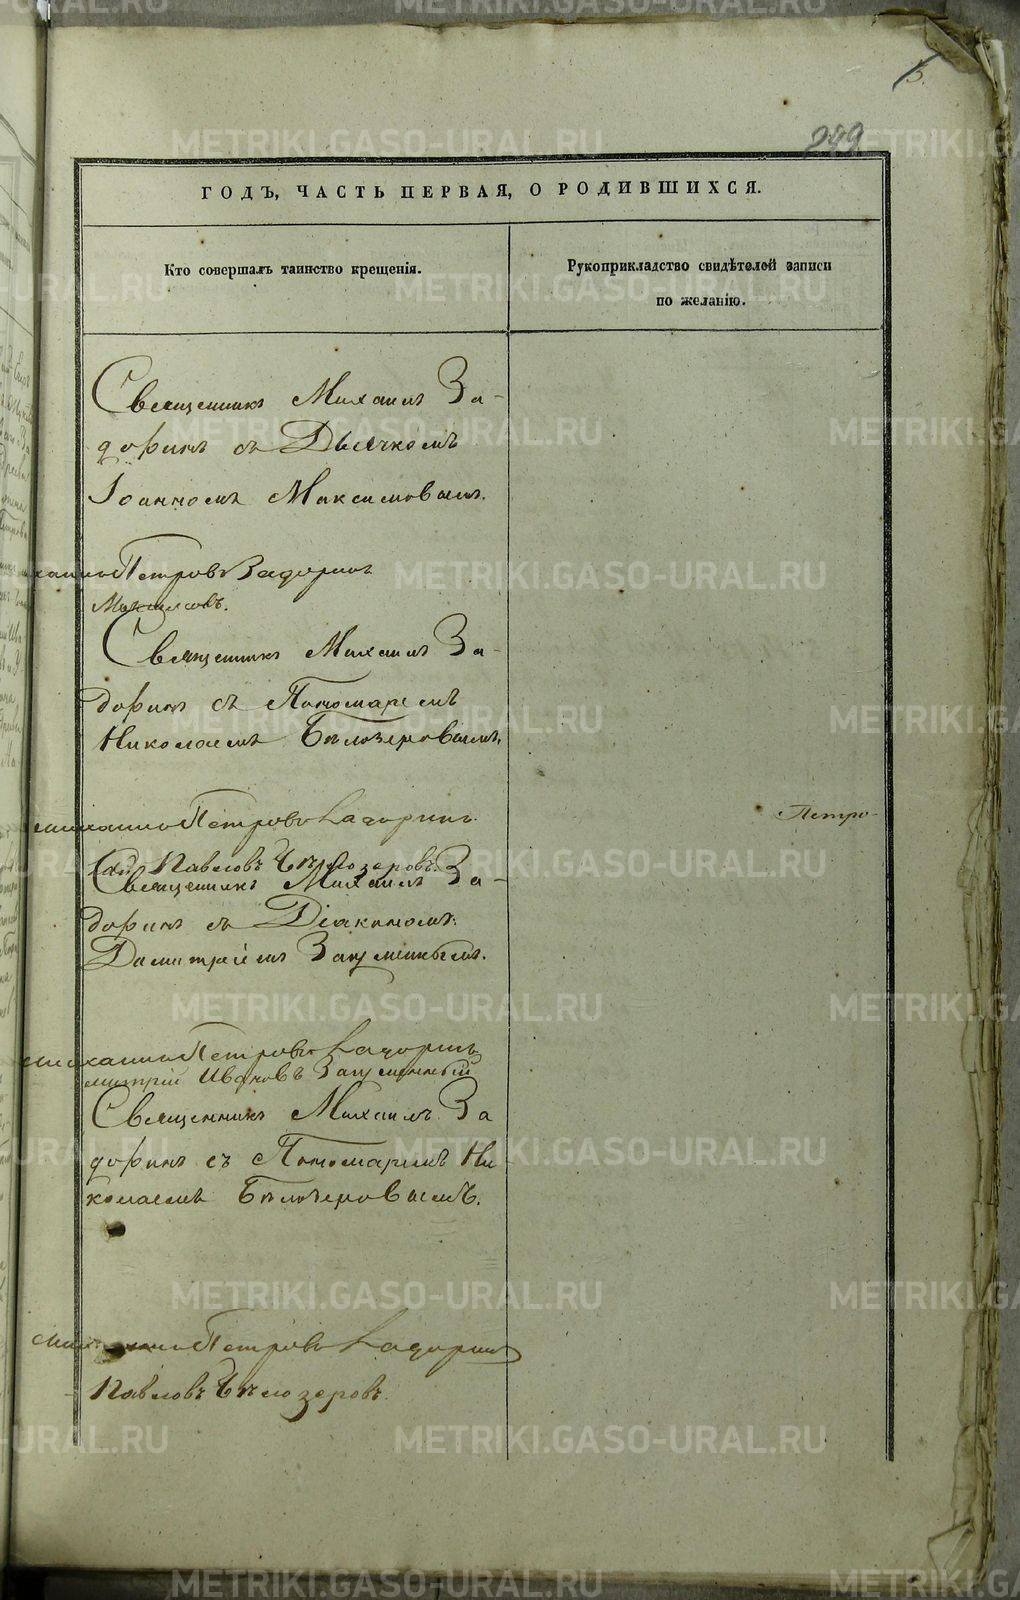 5.
249
ГОДЪ, ЧАСТЬ ПЕРВАЯ, О РОДИВШИХСЯ.
Кто совершалъ таинство крещенія.
Рукоприкладство свидѣтелей записи
по желанію.
Священникъ Михаилъ За-
доринъ съ Дьячкомъ
Іоанномъ Максимовымъ.
Петровъ Задоринъ
Максимовъ.
Священникъ Михаилъ За-
доринъ съ Пономаремъ
Николаемъ Бѣлозеровымъ.
Петровъ Задоринъ
Петро-
Павловъ Бѣлозеровъ.
Священникъ Михаилъ За-
доринъ съ Діакономъ
Димитріемъ Загуменнымъ.
Петровъ Задоринъ
митрій Ивановъ Загуменный
Священникъ Михаилъ За
доринъ съ Пономаремъ Ни-
колаемъ Бѣлозеровымъ.
Петровъ Задоринъ
Павловъ Бѣлозеровъ.
METRIKI.GASO-URAL.RU